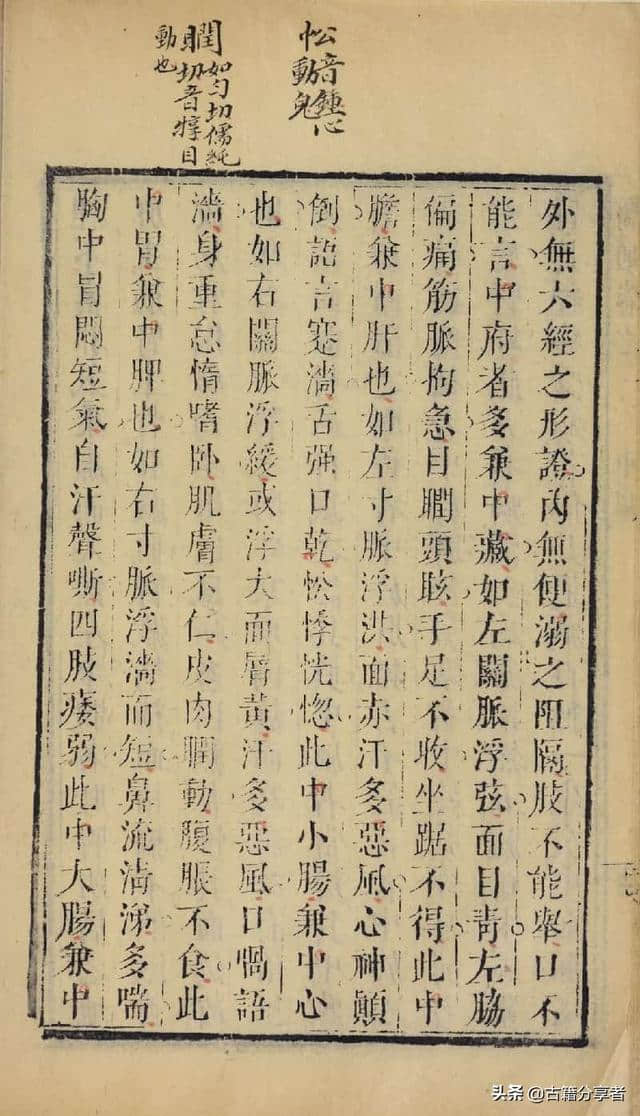 忪音鍾心
動皃
瞤如勻切儒純
切音犉目
動也
外無六經之形證內無便溺之阻隔肢不能舉口不
能言中府者多兼中藏如左關脈浮弦面目靑左脇
偏痛筋脈拘急目瞤頭眩手足不收坐踞不得此中
膽兼中肝也如左寸脈浮洪面赤汗多惡風心神顛
倒語言蹇濇舌强口乾忪悸恍惚此中小腸兼中心
也如右關脈浮緩或浮大面脣黃汗多惡風口喎語
濇身重怠惰嗜卧肌膚不仁皮肉瞤動腹脹不食此
中胃兼中脾也如右寸脈浮濇而短鼻流淸涕多喘
胸中冒悶短氣自汗聲嘶四肢痿弱此中大腸兼中
头条 @古籍分享者